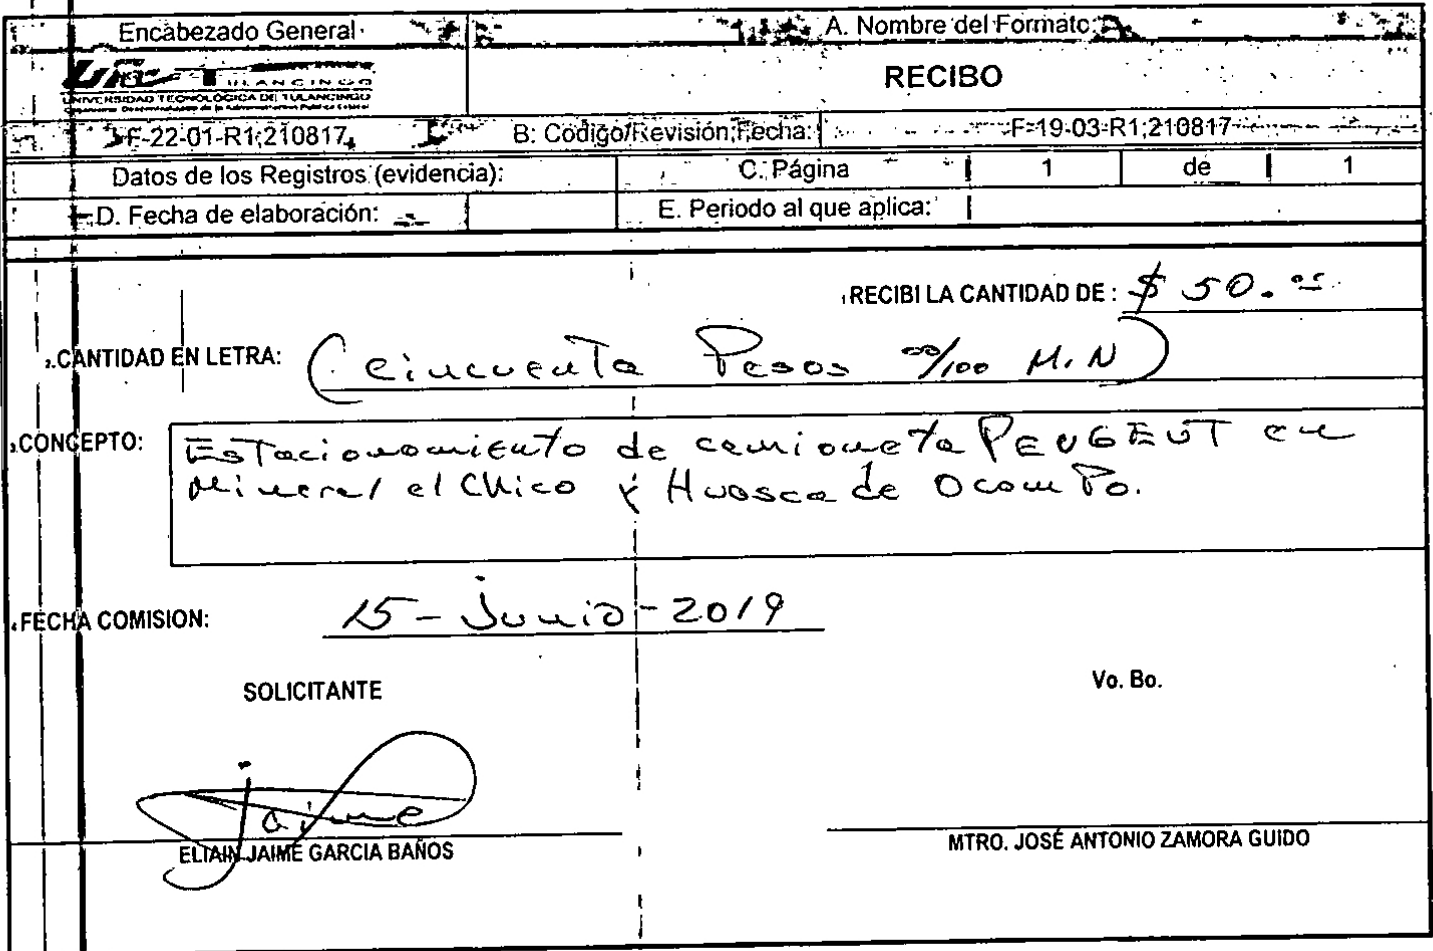 Encabezado General
A. Nombre del Formato:
TULANCINGO
UNIVERSIDAD TECNOLÓGICA DE TULANCINGO
RECIBO
F-22-01-R1;210817
B: Código/Revisión;Fecha:
F-19-03-R1;210817
Datos de los Registros (evidencia):
C. Página 1 de 1
D. Fecha de elaboración:
E. Periodo al que aplica:
1.RECIBI LA CANTIDAD DE : $ 50.00
2.CANTIDAD EN LETRA: (Cincuenta Pesos 00/100 M.N)
3.CONCEPTO: Estacionamiento de camioneta PEUGEUT en
Mineral el Chico y Huasca de Ocampo.
4.FECHA COMISION: 15-Junio-2019
SOLICITANTE
Vo. Bo.
Jaime
ELIAIN JAIME GARCIA BAÑOS
MTRO. JOSÉ ANTONIO ZAMORA GUIDO